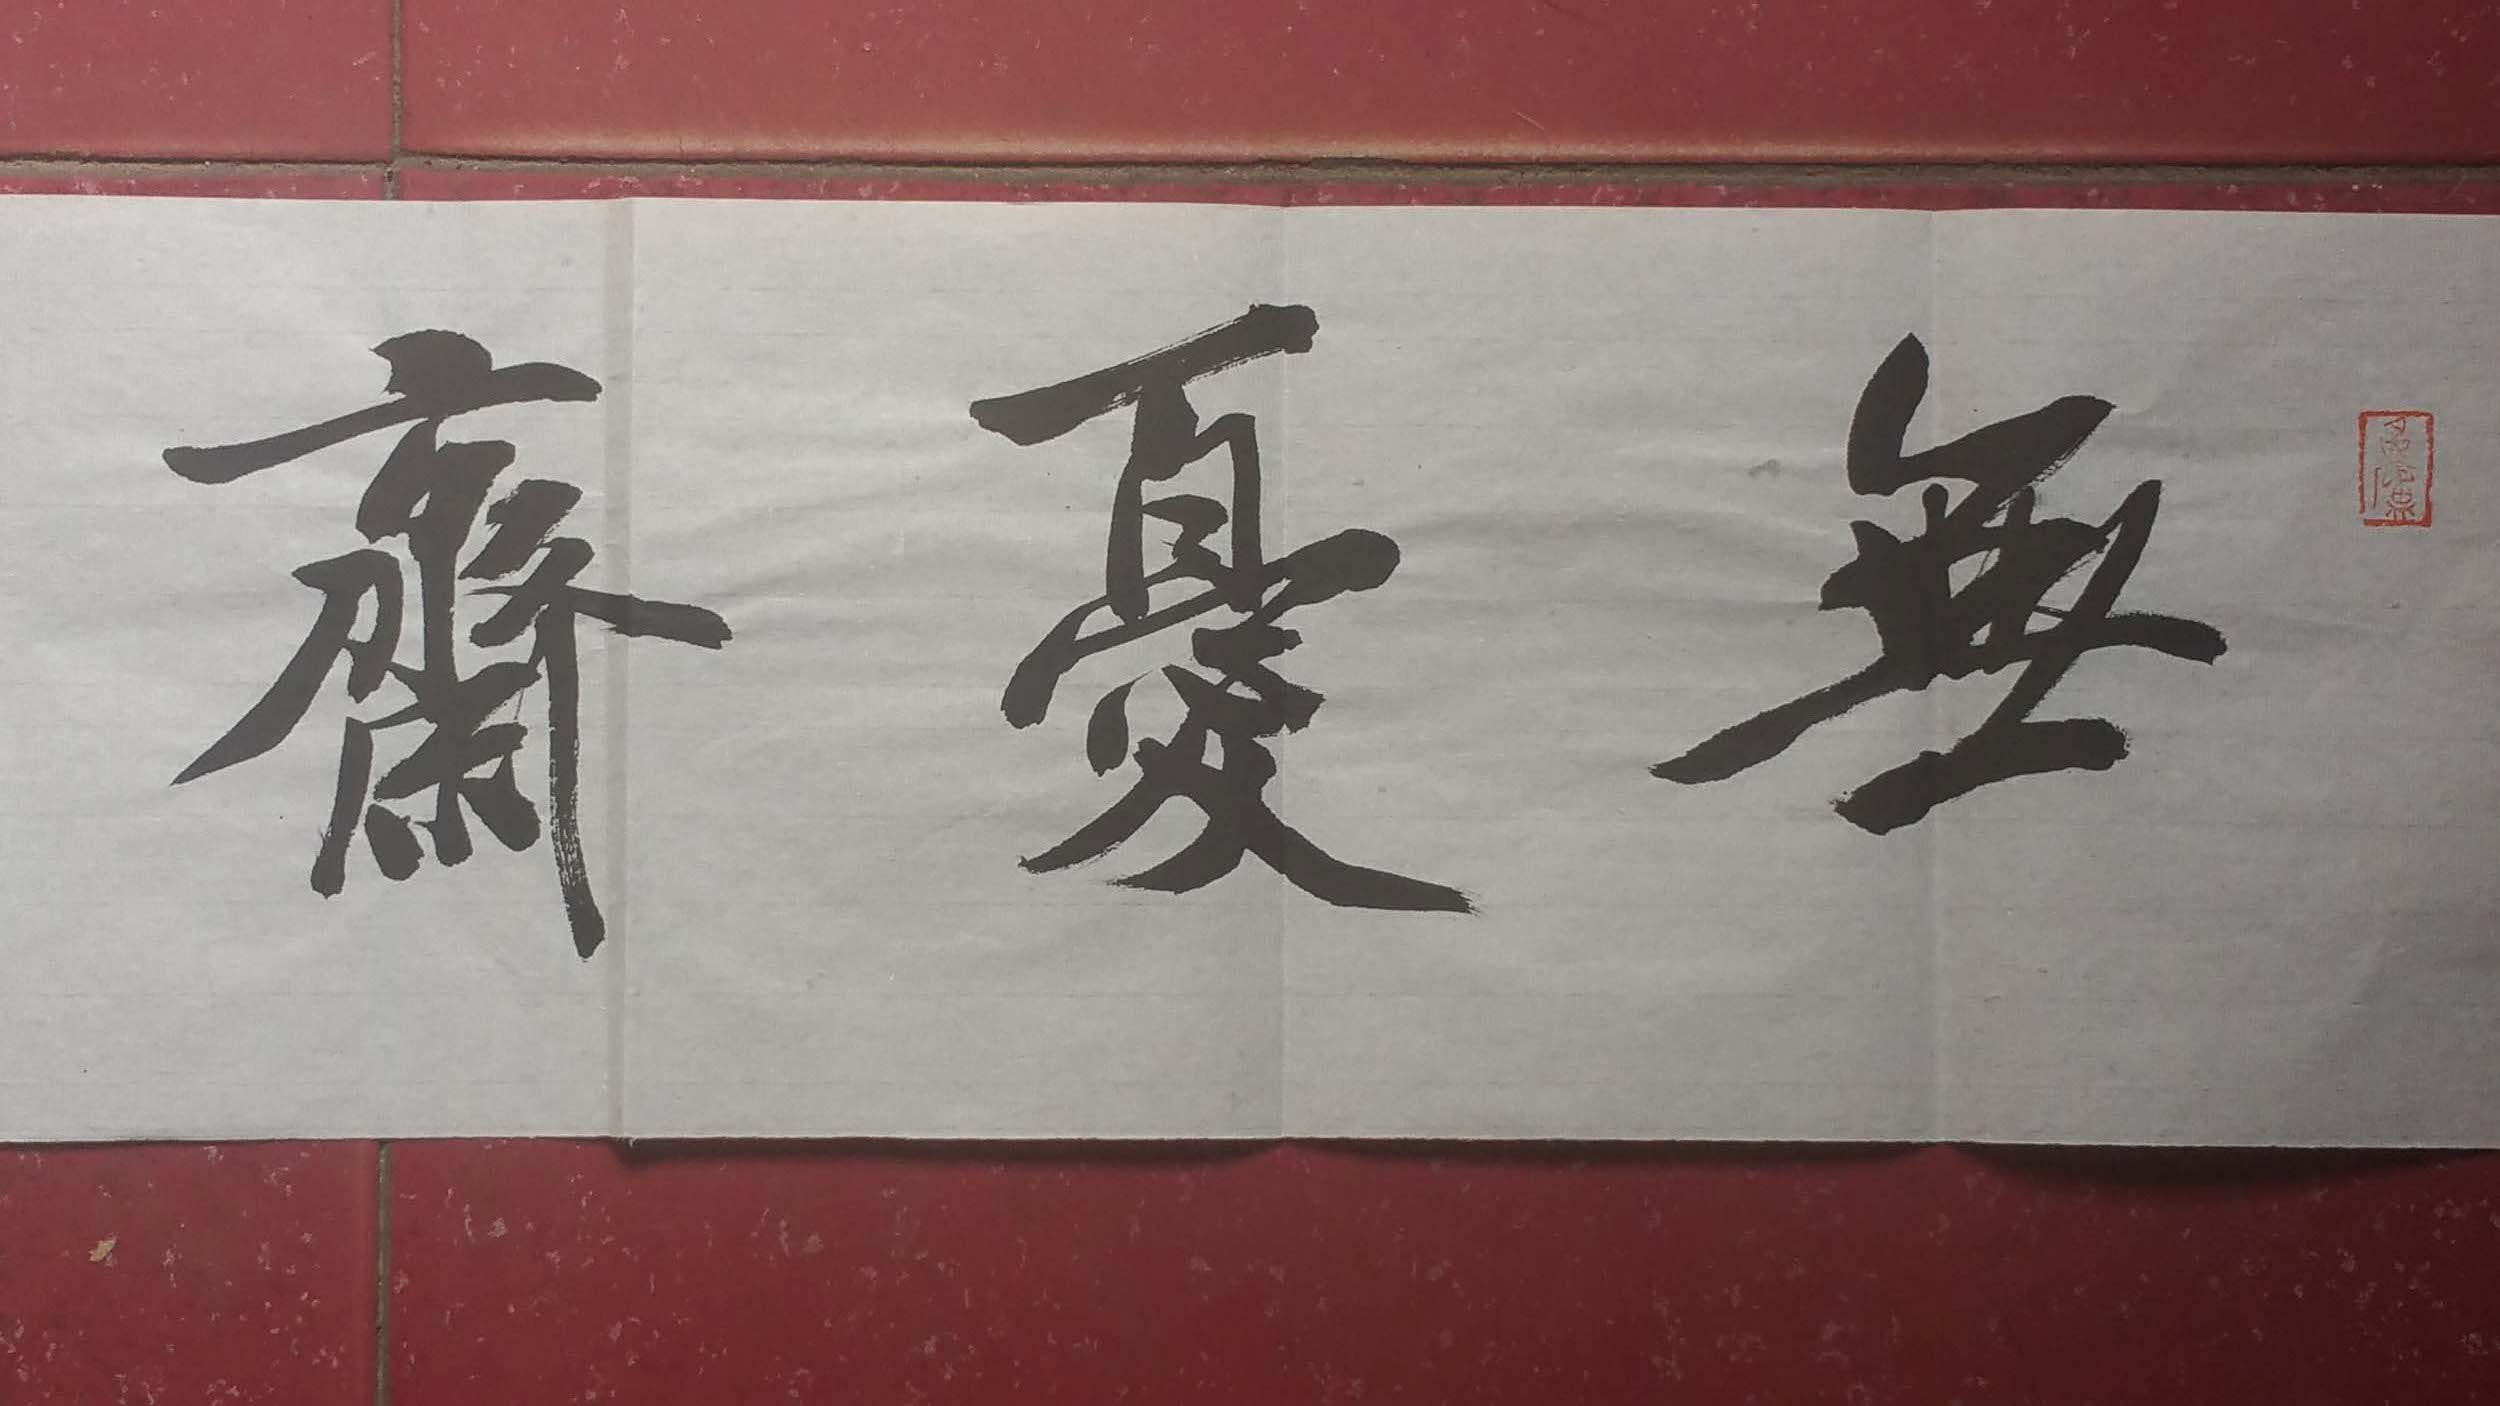 無憂齋